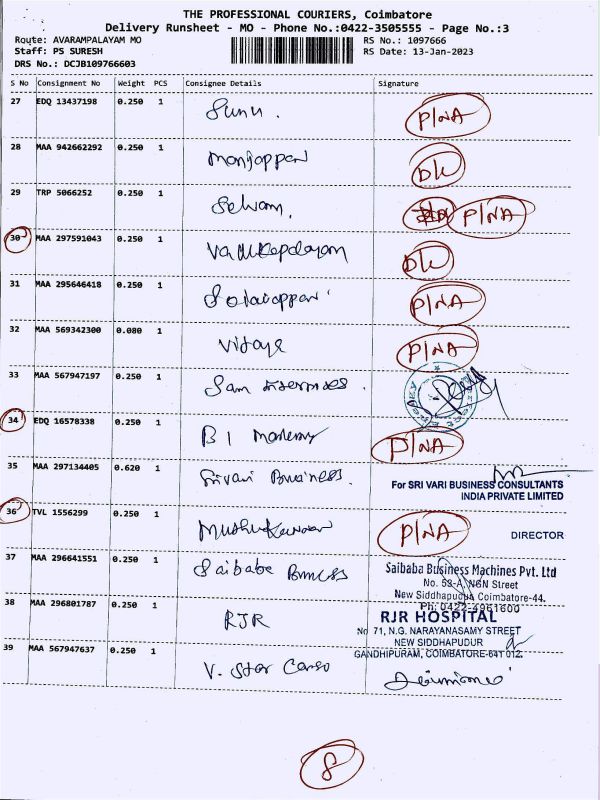 THE PROFESSIONAL COURIERS, Coimbatore
Delivery Runsheet - MO - Phone No.:0422-3505555 - Page No.:3
Route: AVARAMPALAYAM MO RS No.: 1097666
Staff: PS SURESH RS Date: 13-Jan-2023
DRS No.: DCJB109766603
S No Consignment No Weight PCS Consignee Details Signature
27 EDQ 13437198 0.250 1 P/NA
28 MAA 942662292 0.250 1 Manjappan DL
29 TRP 5066252 0.250 1 Selvam. P/NA
30 MAA 297591043 0.250 1 DL
31 MAA 295646418 0.250 1 P/NA
32 MAA 569342300 0.080 1 Vijaya P/NA
33 MAA 567947197 0.250 1 Sam
34 EDQ 16578338 0.250 1 P/NA
35 MAA 297134405 0.620 1 Srivari Business.
For SRI VARI BUSINESS CONSULTANTS
INDIA PRIVATE LIMITED
36 TVL 1556299 0.250 1 P/NA DIRECTOR
37 MAA 296641551 0.250 1 Saibaba
Saibaba Business Machines Pvt. Ltd
No. 53-A, NGN Street
New Siddhapudur Coimbatore-44.
Ph: 0422-4961600
38 MAA 296801787 0.250 1 RJR
RJR HOSPITAL
No 71, N.G. NARAYANASAMY STREET
NEW SIDDHAPUDUR
GANDHIPURAM, COIMBATORE-641 012.
39 MAA 567947637 0.250 1 V. Star
8